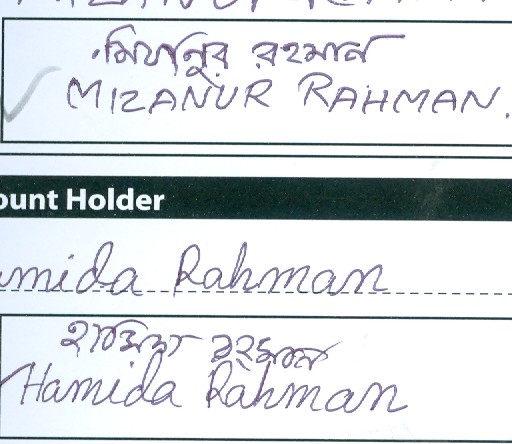 মিযানুর রহমান
MIZANUR RAHMAN.
ount Holder
amida Rahman
হামিদা রহমান
Hamida Rahman